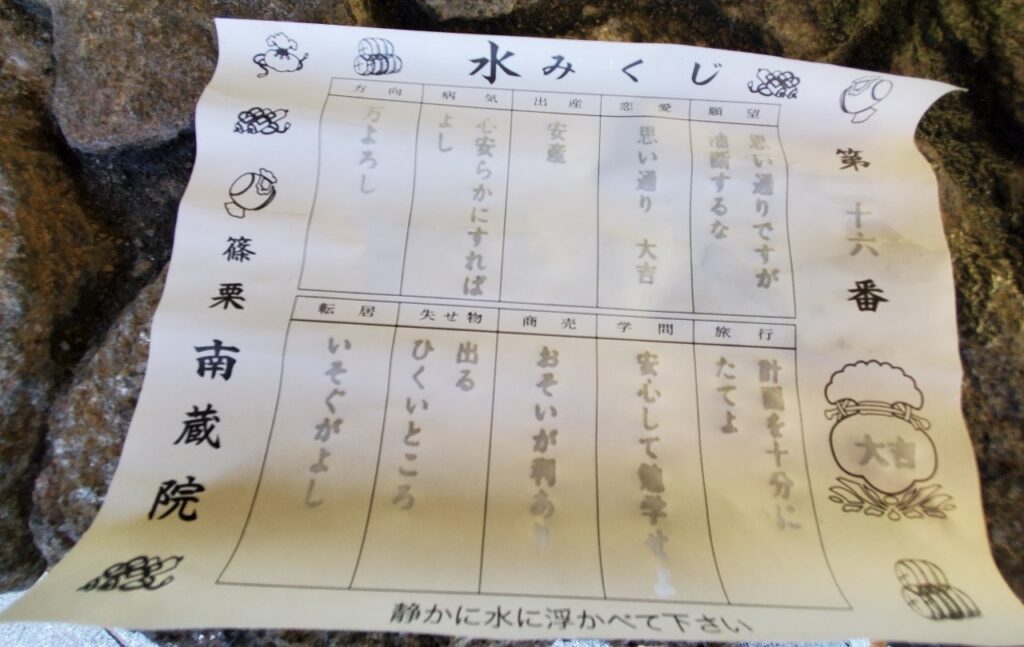 水みくじ
第十六番
大吉
願望
思い通りですが
油断するな
恋愛
思い通り 大吉
出産
安産
病気
心安らかにすれば
よし
方向
万よろし
旅行
計画を十分に
たてよ
学問
安心して勉学せよ
商売
おそいが利あり
失せ物
出る
ひくいところ
転居
いそぐがよし
篠栗南蔵院
静かに水に浮かべて下さい